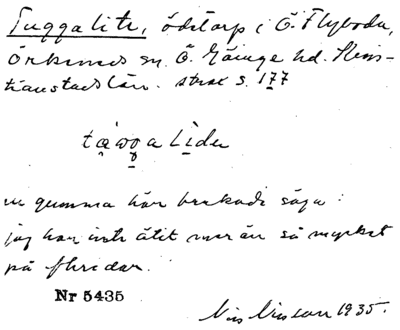 Tuggalite, ödetorp i Ö. Flyboda,
Örkeneds sn. Ö. Göinge hd. Kris-
tianstads län. strax s. 177
en gumma här brukade säga:
jag har inte ätit mer än så mycket
på
Nr 5435
Nils Nilsson 1935.